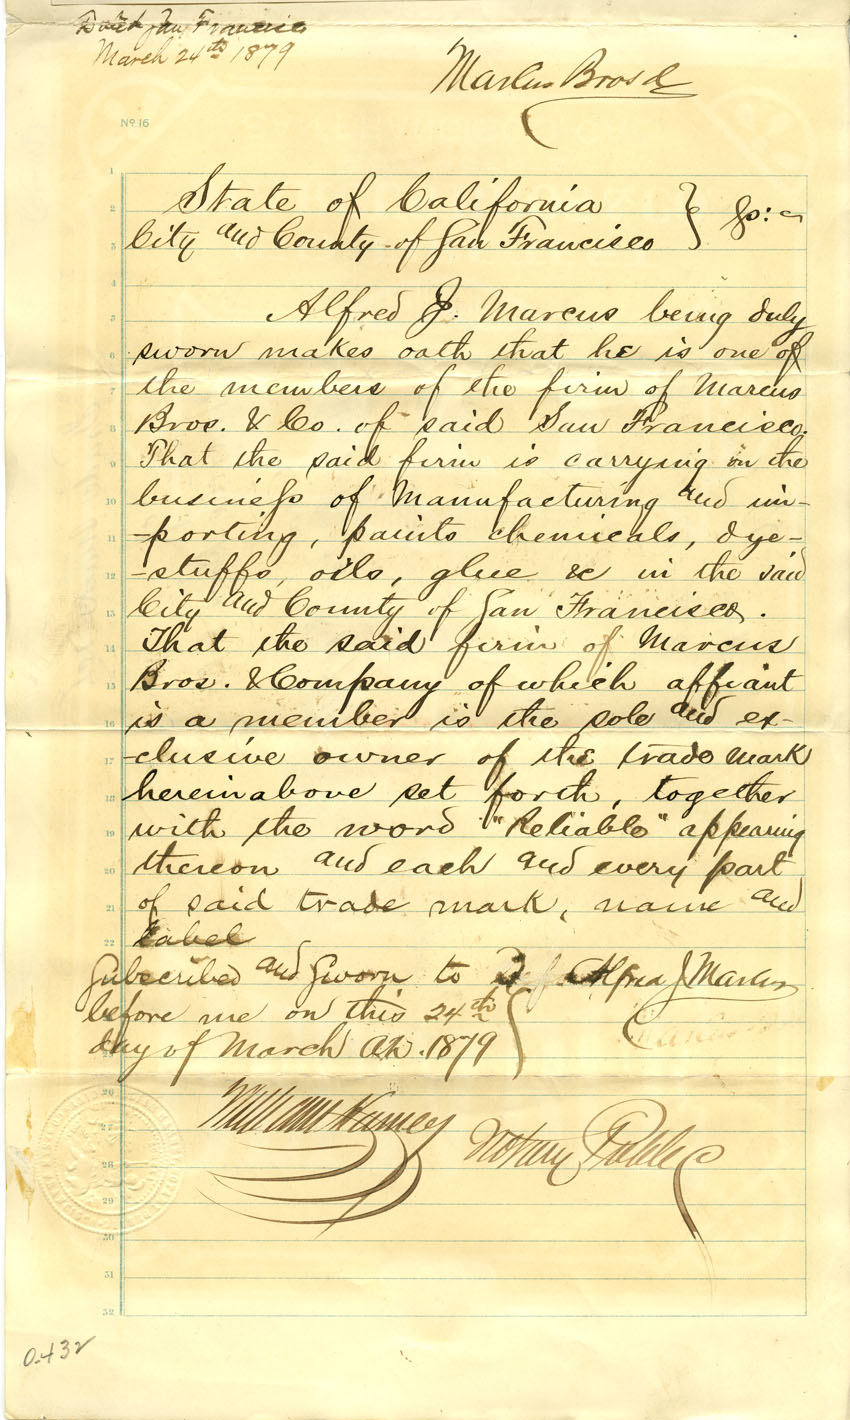 Dated San Francisco
March 24th 1879
Marcus Bros &
No 16
State of California
City and County of San Francisco } ss:
Alfred J. Marcus being duly
sworn makes oath that he is one of
the members of the firm of Marcus
Bros. & Co. of said San Francisco.
That the said firm is carrying on the
business of Manufacturing and im-
-porting, paints chemicals, dye-
-stuffs, oils, glue &c in the said
City and County of San Francisco.
That the said firm of Marcus
Bros. & Company of which affiant
is a member is the sole and ex-
-clusive owner of the trade mark
hereinabove set forth, together
with the word "Reliable" appearing
thereon and each and every part
of said trade mark, name and
label
Subscribed and Sworn to Alfred J Marcus
before me on this 24th
day of March AD. 1879
William Harney
Notary Public
0.432